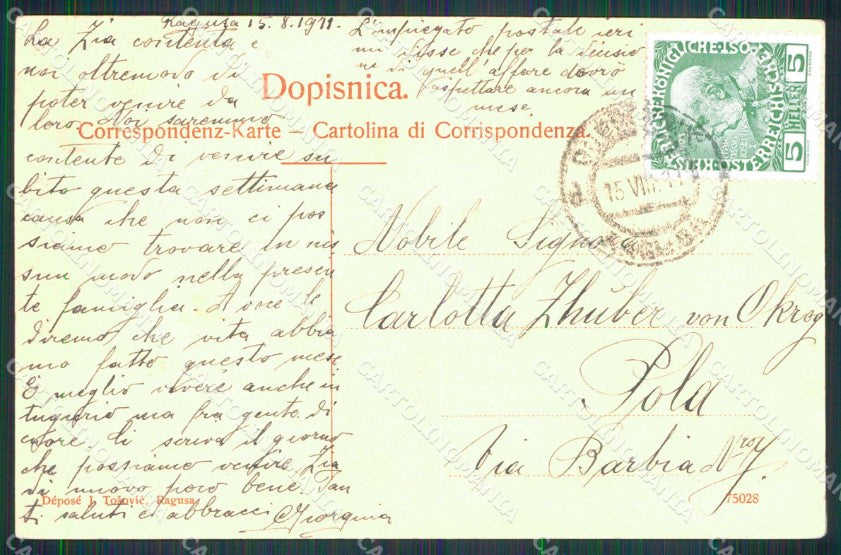 Ragusa 15.8.1911.
La Zia contenta e
noi oltremodo di
poter venire da
loro. Noi saremmo
contente di venire su
bito questa settimana
causa che non ci pos
siamo trovare in nis
sun modo nella presen
te famiglia. A voce le
diremo che vita abbia
mo fatto questo mese
È meglio vivere anche in
tugurio ma fra gente di
cuore. Li scriva il giorno
che possiamo venire. Zia
di nuovo poco bene. Tan
ti saluti ed abbracci Giorgina
L'impiegato postale ieri
mi disse che per la decisio
ne di quell'affare dovrò
aspettare ancora un
mese
Dopisnica.
Correspondenz-Karte – Cartolina di Corrispondenza.
KAISERKÖNIGLICHE ÖSTERREICHISCHE
5
HELLER
5
15 VIII 11
Nobile Signora
Carlotta Zhuber von Okrog
Pola
Via Barbia Nro 7
Déposé J. Tošović, Ragusa
75028
CARTOLINOMANIA